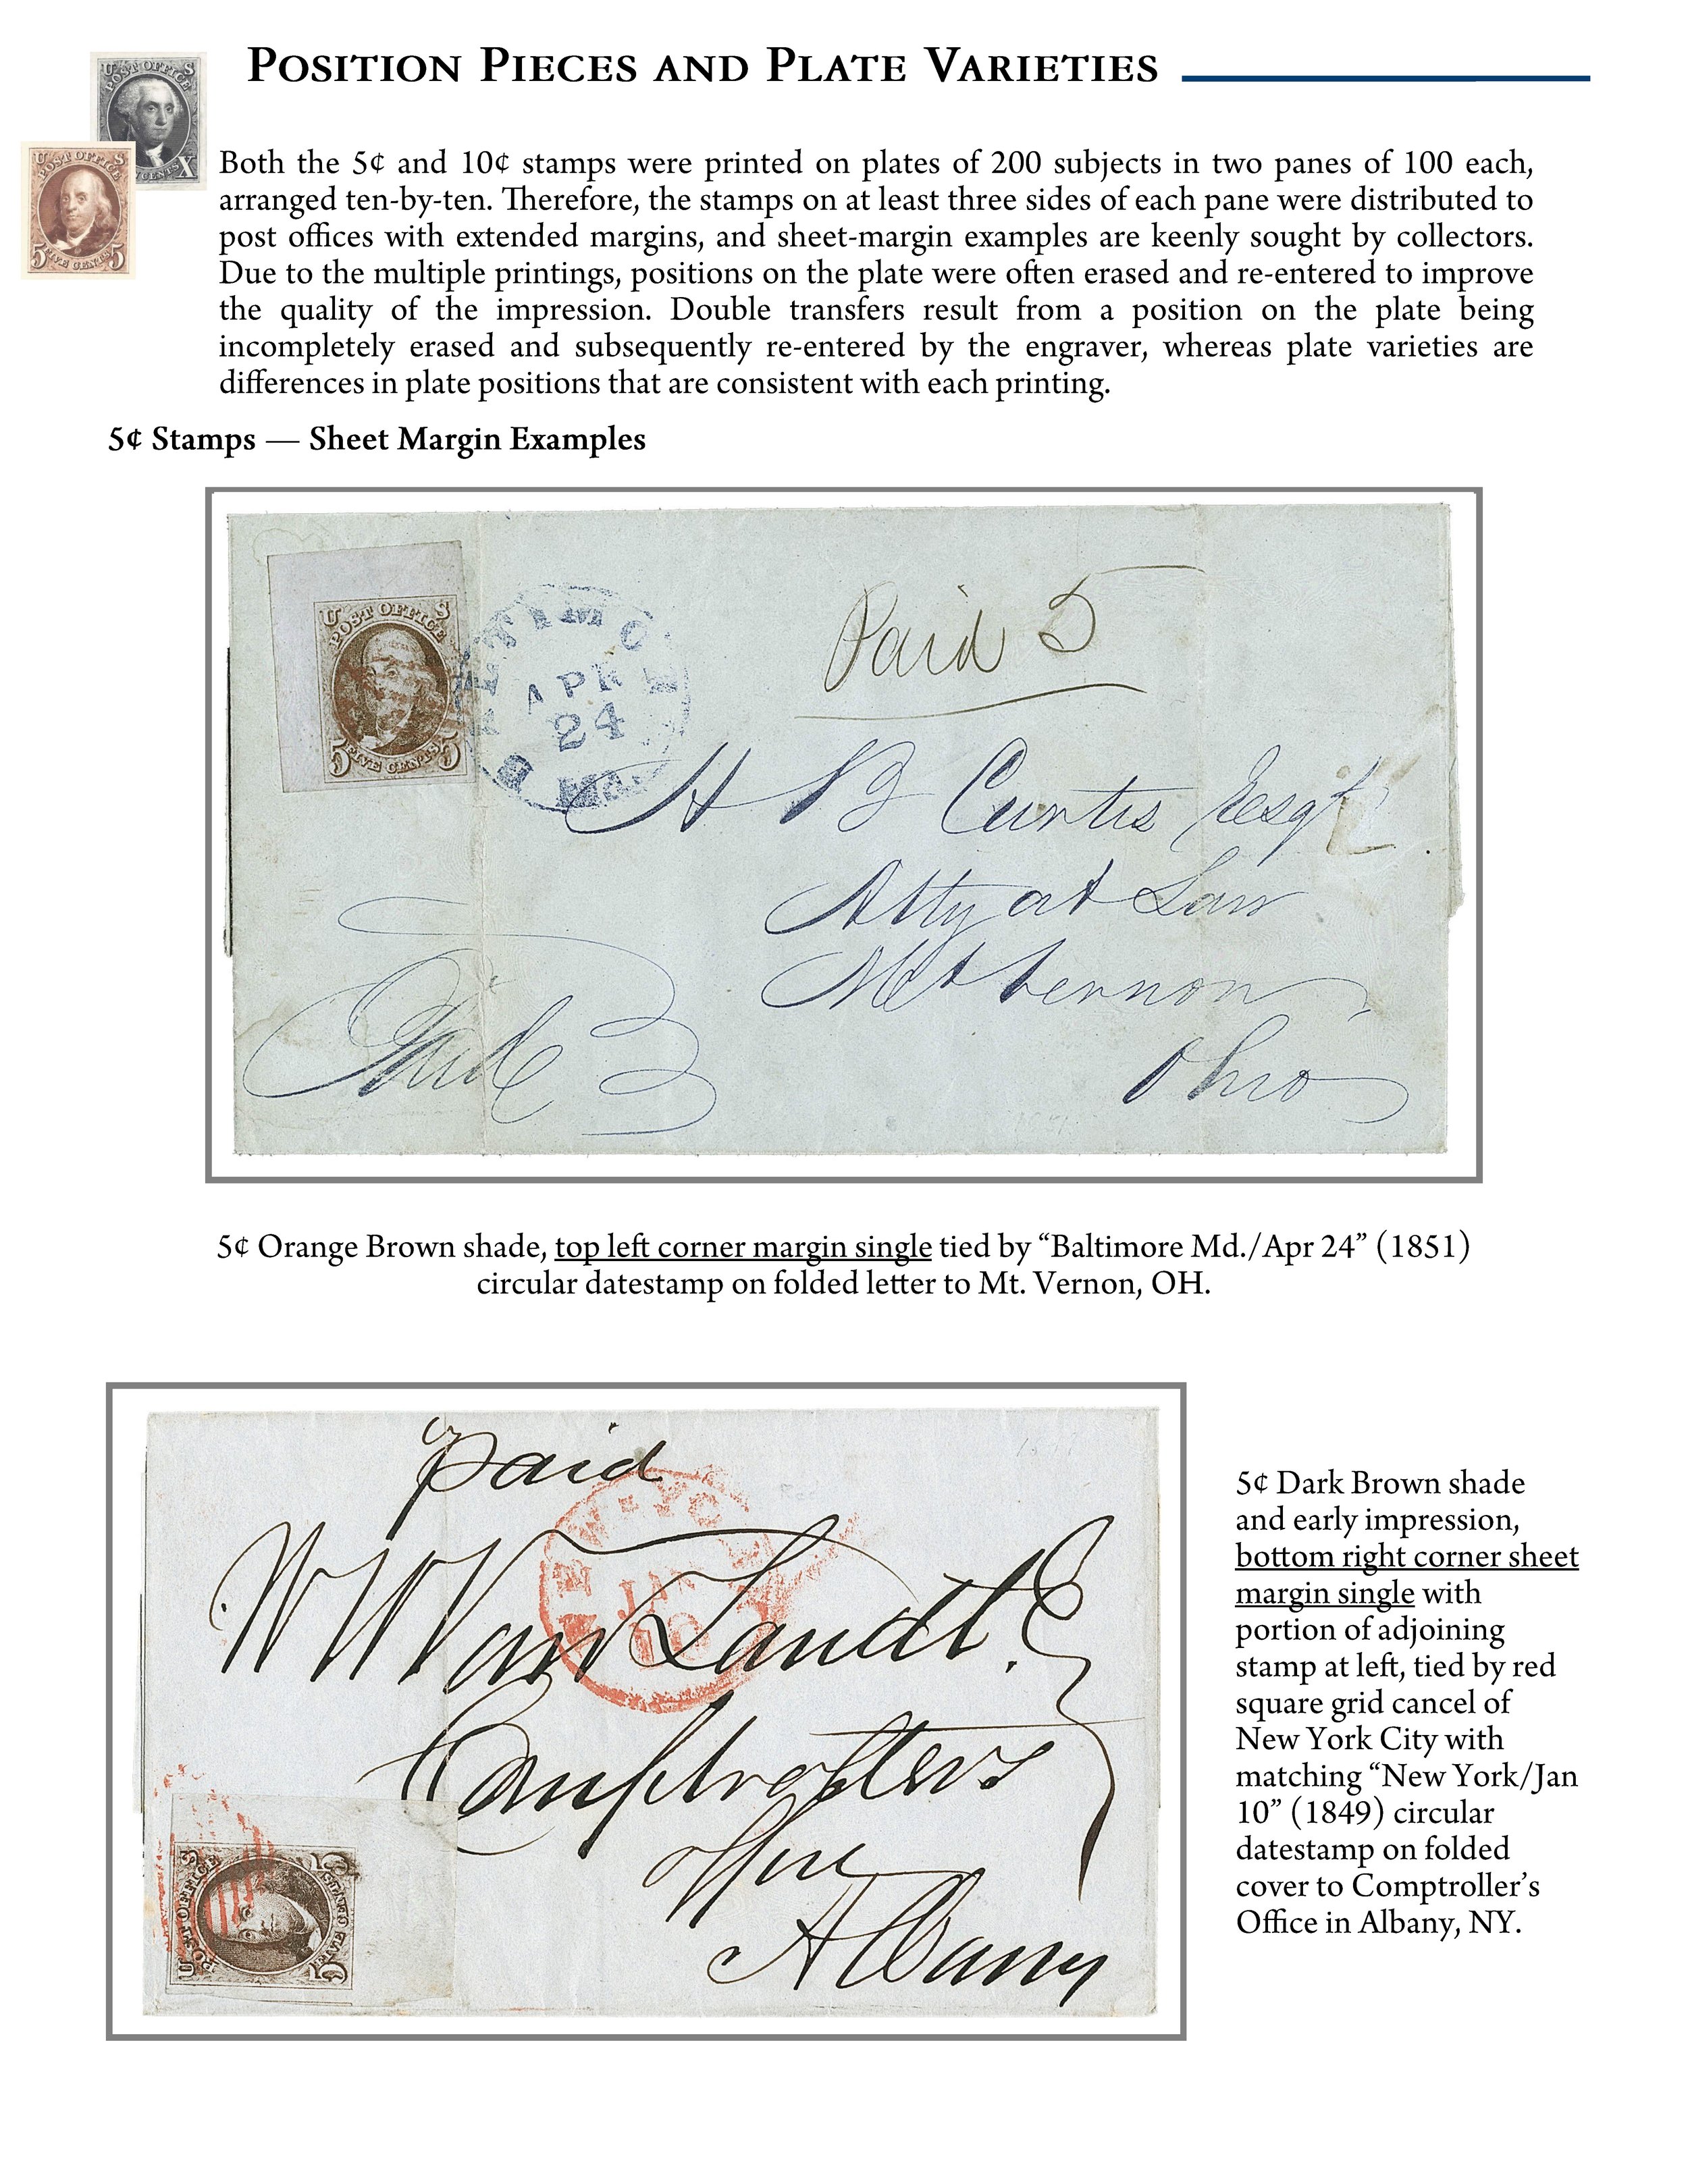 POSITION PIECES AND PLATE VARIETIES
U POST OFFICE S
CENTS X
U POST OFFICE S
5 FIVE CENTS 5
Both the 5¢ and 10¢ stamps were printed on plates of 200 subjects in two panes of 100 each,
arranged ten-by-ten. Therefore, the stamps on at least three sides of each pane were distributed to
post offices with extended margins, and sheet-margin examples are keenly sought by collectors.
Due to the multiple printings, positions on the plate were often erased and re-entered to improve
the quality of the impression. Double transfers result from a position on the plate being
incompletely erased and subsequently re-entered by the engraver, whereas plate varieties are
differences in plate positions that are consistent with each printing.
5¢ Stamps — Sheet Margin Examples
U POST OFFICE S
5 FIVE CENTS 5
APR
24
Md.
Paid 5
H B Curtis Esqr
Atty at Law
Mt Vernon
Ohio
5¢ Orange Brown shade, top left corner margin single tied by “Baltimore Md./Apr 24” (1851)
circular datestamp on folded letter to Mt. Vernon, OH.
paid
JAN
10
W W Van Zandt.
Comptrollers
office
Albany
U POST OFFICE S
5 FIVE CENTS 5
5¢ Dark Brown shade
and early impression,
bottom right corner sheet
margin single with
portion of adjoining
stamp at left, tied by red
square grid cancel of
New York City with
matching “New York/Jan
10” (1849) circular
datestamp on folded
cover to Comptroller’s
Office in Albany, NY.